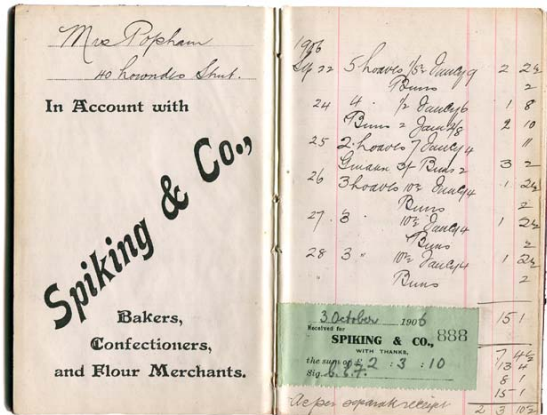 Mrs Popham
40 Lowndes Street.
In Account with
Spiking & Co.,
Bakers,
Confectioners,
and Flour Merchants.
1906
22 5 loaves 9 2 2½
Buns 2
24 4 " 6 1 8
Buns 2 2 10
25 2 loaves 7 4 11
3/ Buns 2 3 2
26 3 loaves 10½ 4 1 2½
Buns 2
27 3 " 10½ 4 1 2½
Buns 2
28 3 " 10½ 4 1 2½
Buns 2
15 1
3 October 1906
Received for
SPIKING & CO., 888
WITH THANKS,
the sum of £ 2 : 3 : 10
Sig.
7 4½
13 4
8 1
15 1
As per separate receipt
2 3 10½